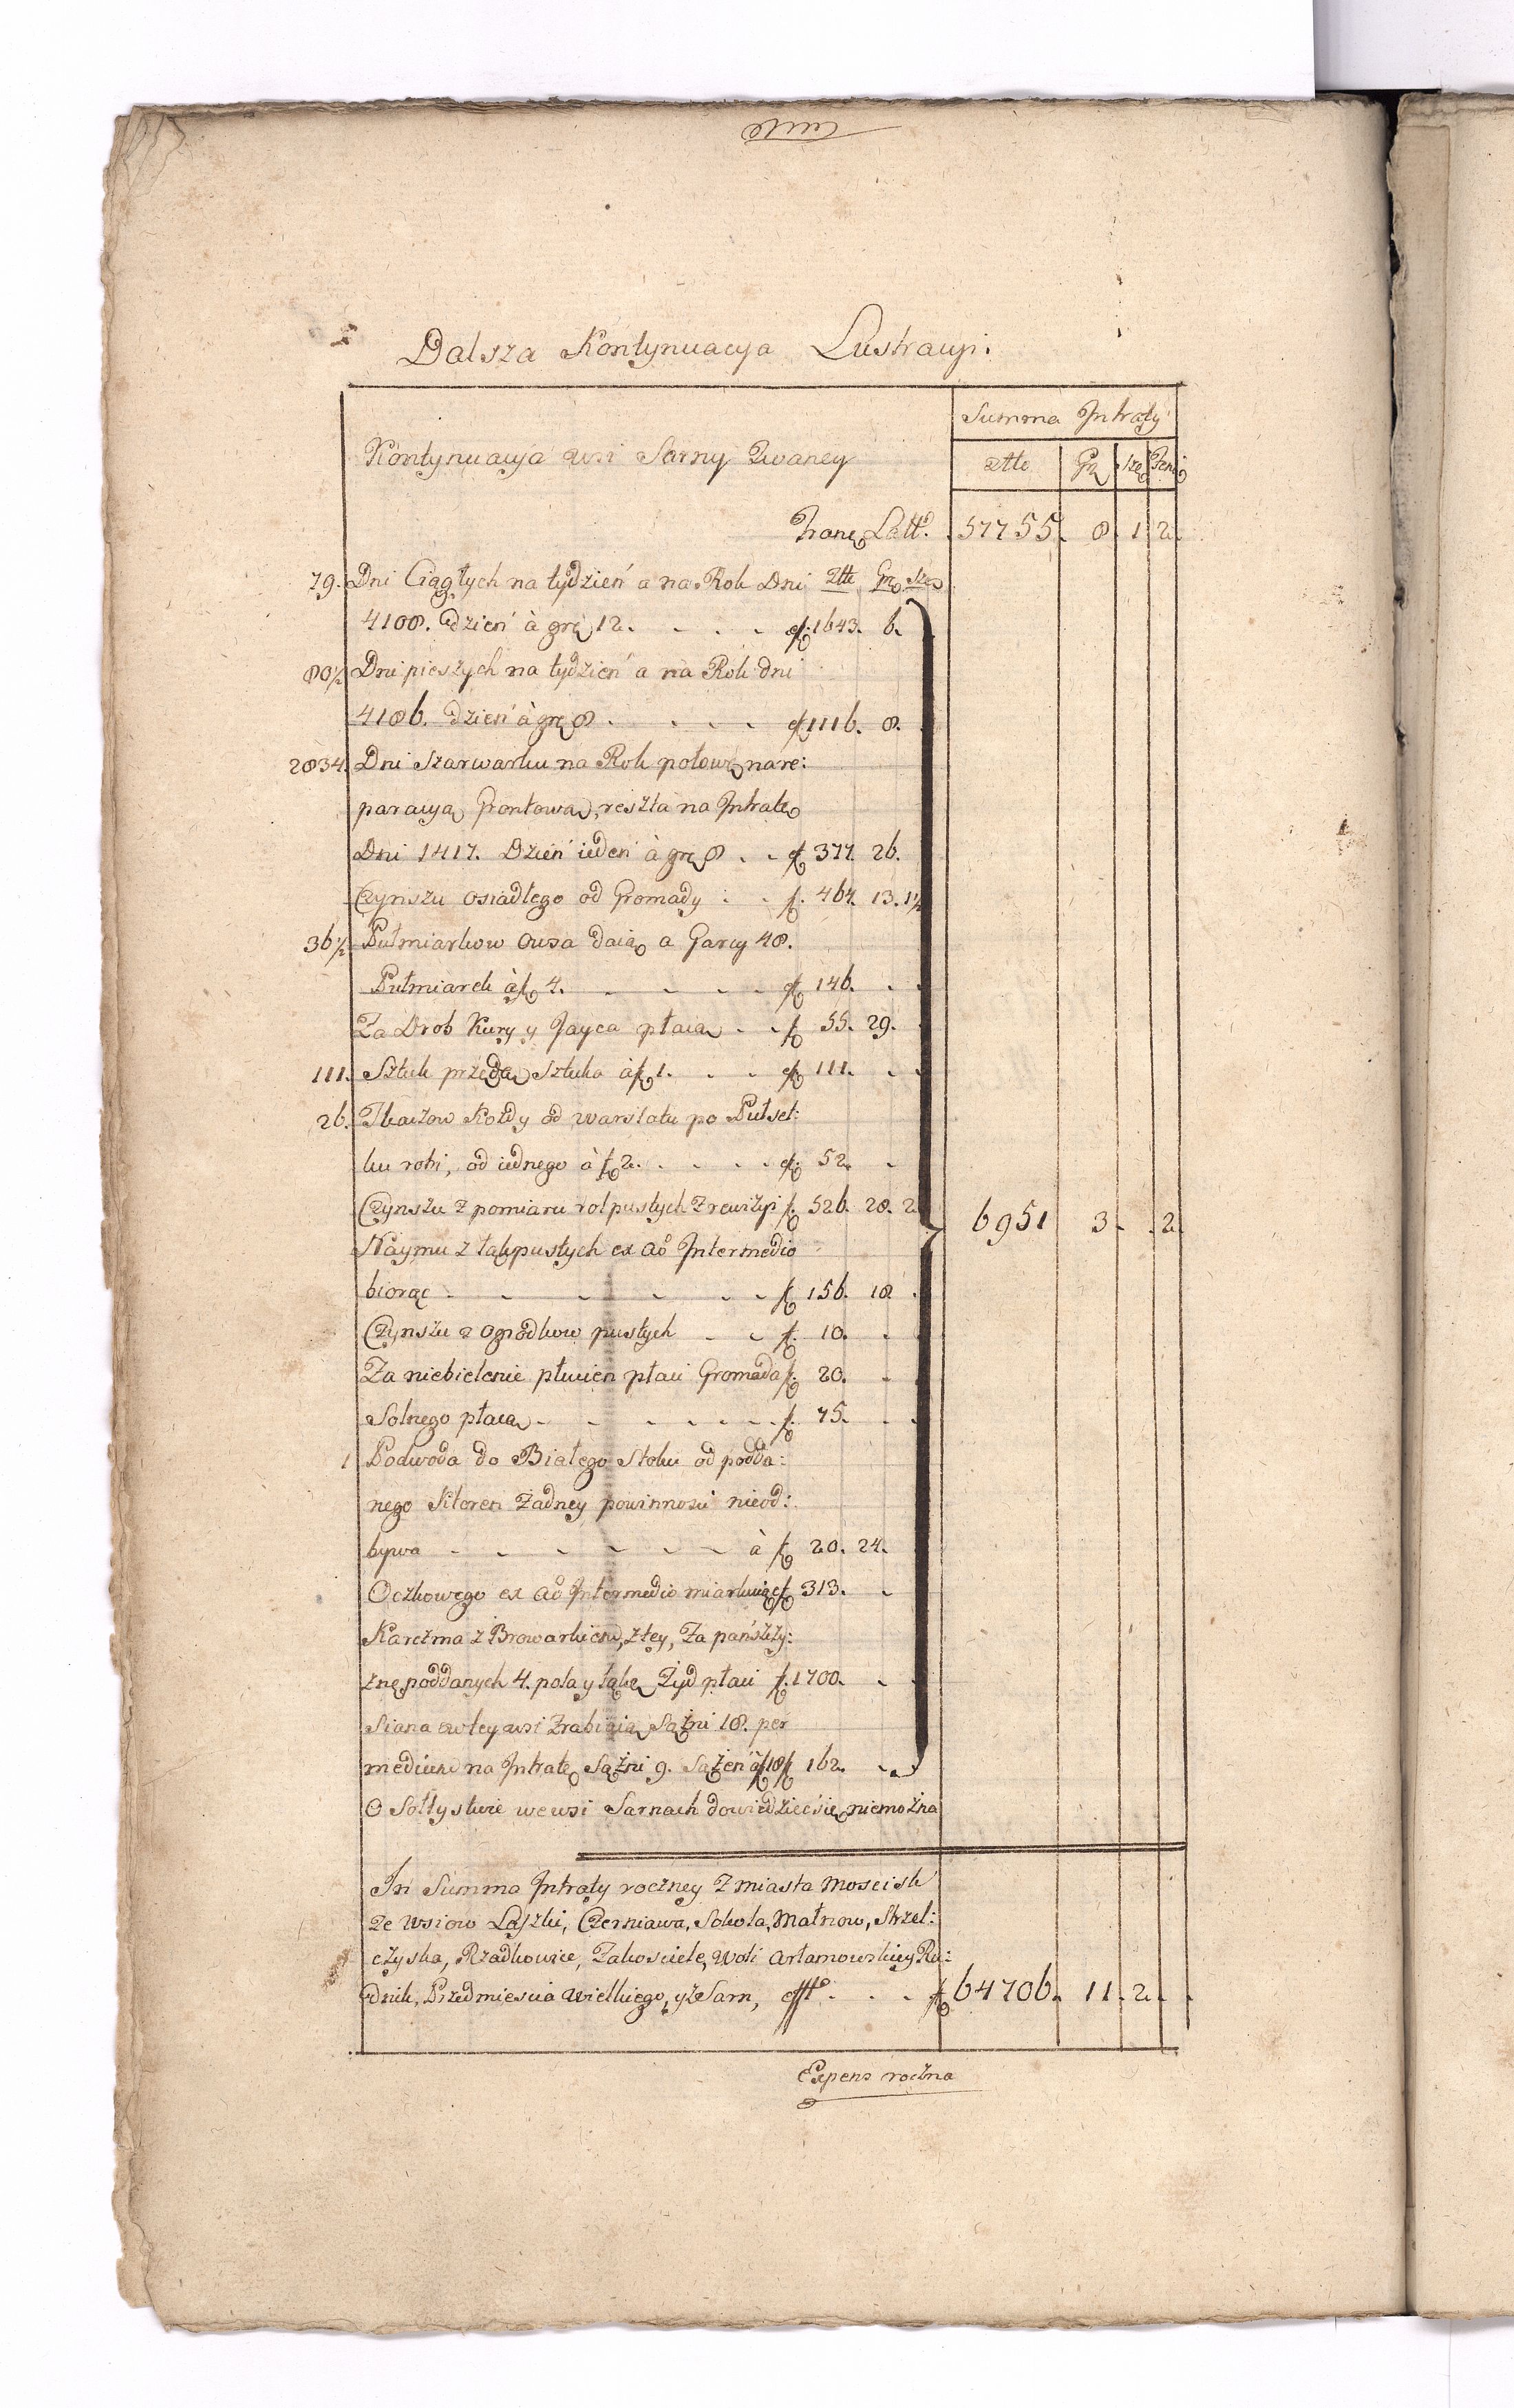 Dalsza Kontynuacya Lustracyi.
Summa Intraty
Kontynuacya wsi Sarny Zwaney
Złłe Gr Sze Feni
Trans Latt. 57755. 8. 1. 2.
79. Dni Ciągłych na tydzień a na Rok Dni Złłe Gr Sze
4108. dzień à gr 12. - - - - f. 1643. 6.
80 1/2 Dni pieszych na tydzień a na Rok dni
4186. dzień à gr 8. - - - f 1116. 8.
2834. Dni szarwarku na Rok połowę na re:
paracyą Grontową, reszta na Intratę
Dni 1417. Dzień ieden à gr 8. - - f 377. 26.
Czynszu osiadłego od Gromady : - f. 467. 13. 1 1/2
36 1/2 Pułmiarkow Owsa daią a Garcy 48.
Pułmiarek à f 4. - - - - f 146. - -
Za Drob Kury y Jayca płacą - - f 55. 29.
111. Sztuk przędą Sztuka à f 1. - - f 111. - -
26. Tkaczow Każdy od warstatu po Pułset:
ku robi, od iednego à f 2. - - - - f 52. -
Czynszu z pomiaru rol pustych z rewizyi f. 526. 28. 2
6951 3 - . 2.
Naymu z łąk pustych ex aô Intermedio
biorąc - - - - - - f 156. 18.
Czynszu z ogrodkow pustych - - f. 10. -
Za niebielenie płucien płaci Gromada f. 20. -
Solnego płacą - - - - - - f. 75. - -
1 Podwoda do Białego Stoku od podda:
nego ktoren żadney powinnosci nieod:
bywa - - - - - - à f 20. 24.
Oczkowego ex aô Intermedio miarkuiąc f 313. -
Karczma z Browarkiem, złey, Za pańszczy:
znę poddanych 4. pola y łąkę Żyd płaci f. 1700. - -
Siana w tey wsi Zrabiaią Sążni 18. per
medium na Intratę Sążni 9. Sążeń à f 18 f 162. - -
O Sołtystwie we wsi Sarnach dowiedzieć się niemożna
In Summa Intraty roczney Z miasta Mościsk
Ze Wsiow Laszki, Czerniawa, Sokola, Małnow, Strzel:
czyska, Rzadkowice, Zakościele, Woli Arłamowskiey Ru:
dnik, Przedmiescia Wielkiego, y z Sarn, - - - f 64706. 11. 2. -
Expens roczna